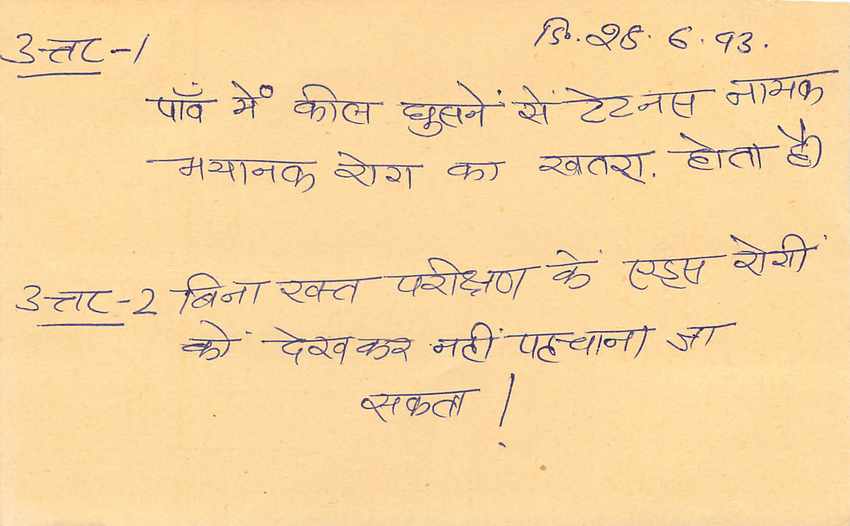 उत्तर-1 दि. 28.6.93.
पाँव में कील घुसनें सें टेटनस नामक
भयानक रोग का खतरा. होता है।
उत्तर-2 बिना रक्त परीक्षण कें एड्स रोगीं
कों देखकर नहीं पहचाना जा
सकता !